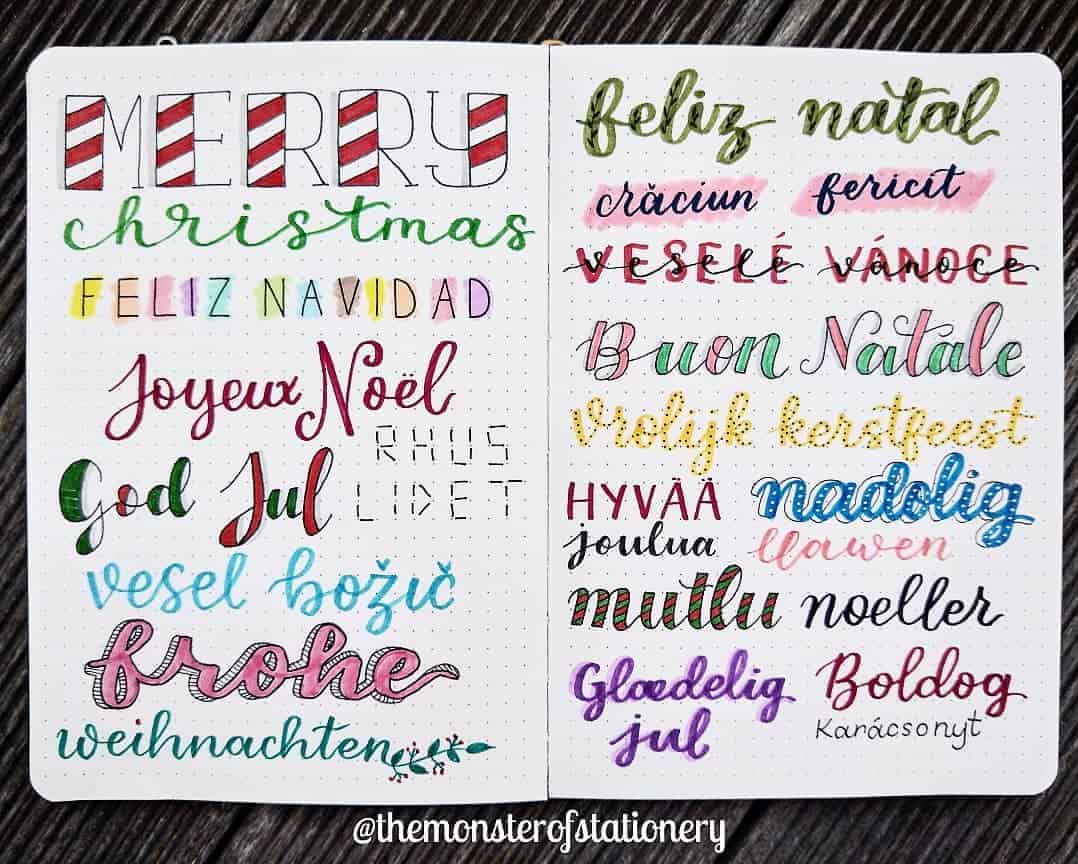 MERRY
christmas
FELIZ NAVIDAD
Joyeux Noël
RHUS
LIDET
God Jul
vesel božič
frohe
weihnachten
feliz natal
crăciun fericit
VESELÉ VÁNOCE
Buon Natale
vrolijk kerstfeest
HYVÄÄ
joulua
nadolig
llawen
mutlu noeller
Glædelig
jul
Boldog
Karácsonyt
@themonsterofstationery